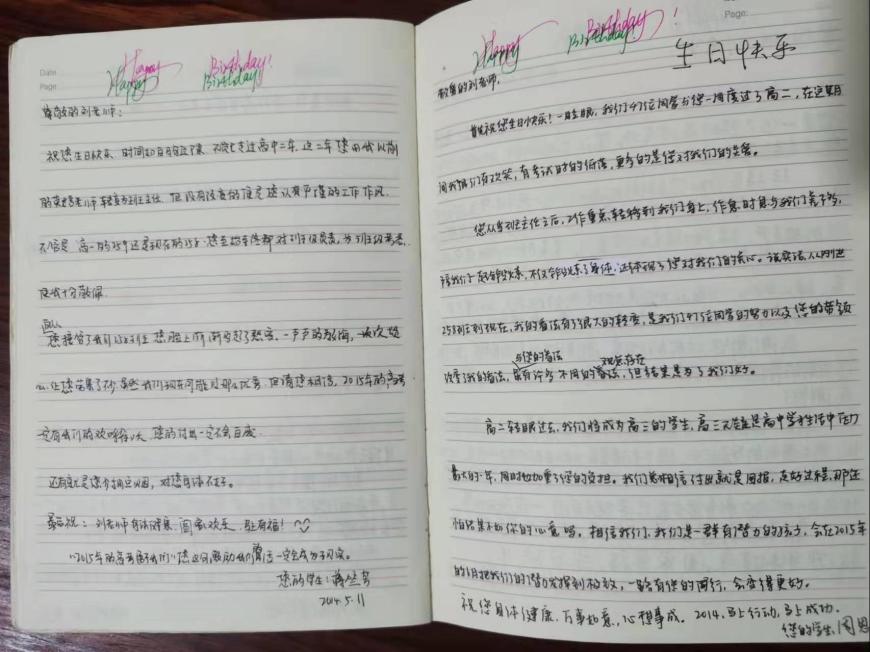 Date
Page
Happy Birthday!
Happy Birthday!
尊敬的刘老师:
祝您生日快乐. 时间如白驹过隙, 不知不觉走过高中二年. 这二年您由我以前
的英语老师转变为班主任. 但没有改变的依然是您认真严谨的工作作风.
不管是高一的259还是现在的253. 您至始至终都对班级负责, 为班级着想.
使我十分敬佩.
自从您接管了我们253班 您脸上渐渐的起了愁容. 一声声的教诲, 一次次
让您苦累了 虽然我们现在可能没那么优秀. 但请您相信, 2015年的高考
一定有我们的欢呼 您的付出一定不会白废.
还有就是您少抽点烟, 对您身体不好.
最后祝: 刘老师身体健康, 阖家欢乐. 永驻幸福!
"2015年的高考属于我们" 您这句激励我们的话一定会成为现实.
您的学生:
2014.5.11
Page:
Happy Birthday!
Happy Birthday!
生日快乐
敬爱的刘老师:
首先祝您生日快乐! 一眨眼, 我们47位同学与您一同度过了高二, 在这期
间我们有欢笑, 有考试时的低落, 更多的是您对我们的关爱。
您从当班主任之后, 工作重点转移到我们身上, 作息时息与我们
我们 不仅 了身体, 还体现了您对我们的关心。说实话, 从刚进
253班到现在, 我的看法有了很大的转变, 是我们47位同学的努力以及您的带领
改变了我的看法, 虽有许多与您的看法不同的观点存在, 但结果是为了我们好。
高二转眼过去, 我们将成为高三的学生, 高三不仅是高中学习生活中压力
最大的一年, 同时也加重了您的负担。我们总相信付出就是回报, 走好过程, 那还
怕结果不如你的心意吗。相信我们, 我们是一群有潜力的孩子, 会在2015年
的6月把我们的潜力发挥到极致, 一路有您的同行, 会变得更好。
祝您身体健康, 万事如意, 心想事成。2014, 马上行动, 马上成功.
您的学生: 周